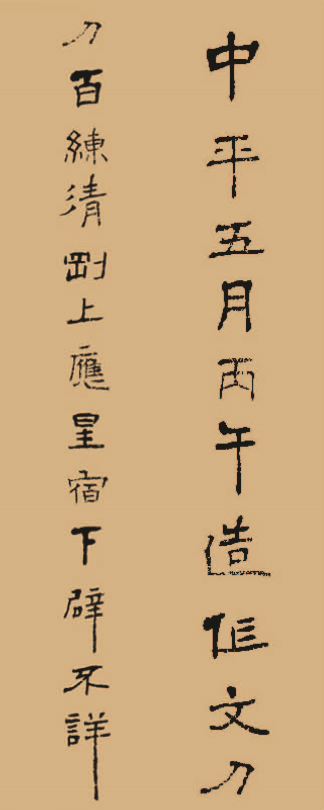 中平五月丙午造作文刀
刀百練清剛上應星宿下辟不詳